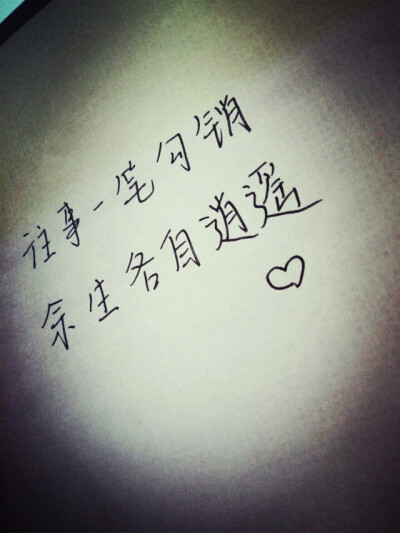 往事一笔勾销
余生各自逍遥